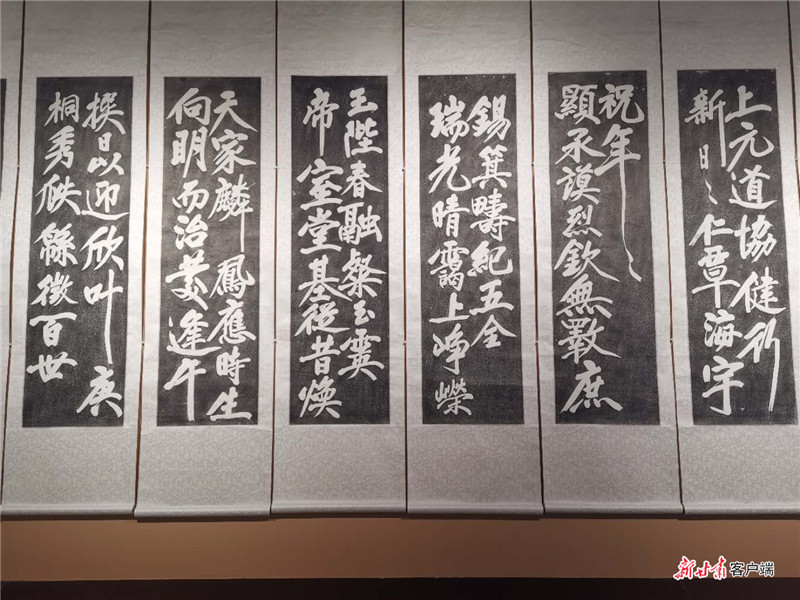 上元道協健行
新日〻仁覃海宇
祝年〻
顯承謨烈欽無斁庶
錫箕疇紀五全
瑞光晴靄上崢嶸
玉陛春融粲玉霙
帝室堂基從昔煥
天家麟鳳應時生
向明而治逢午
揆日以迎欣叶庚
桐秀瓞緜徵百世
新甘肃客户端